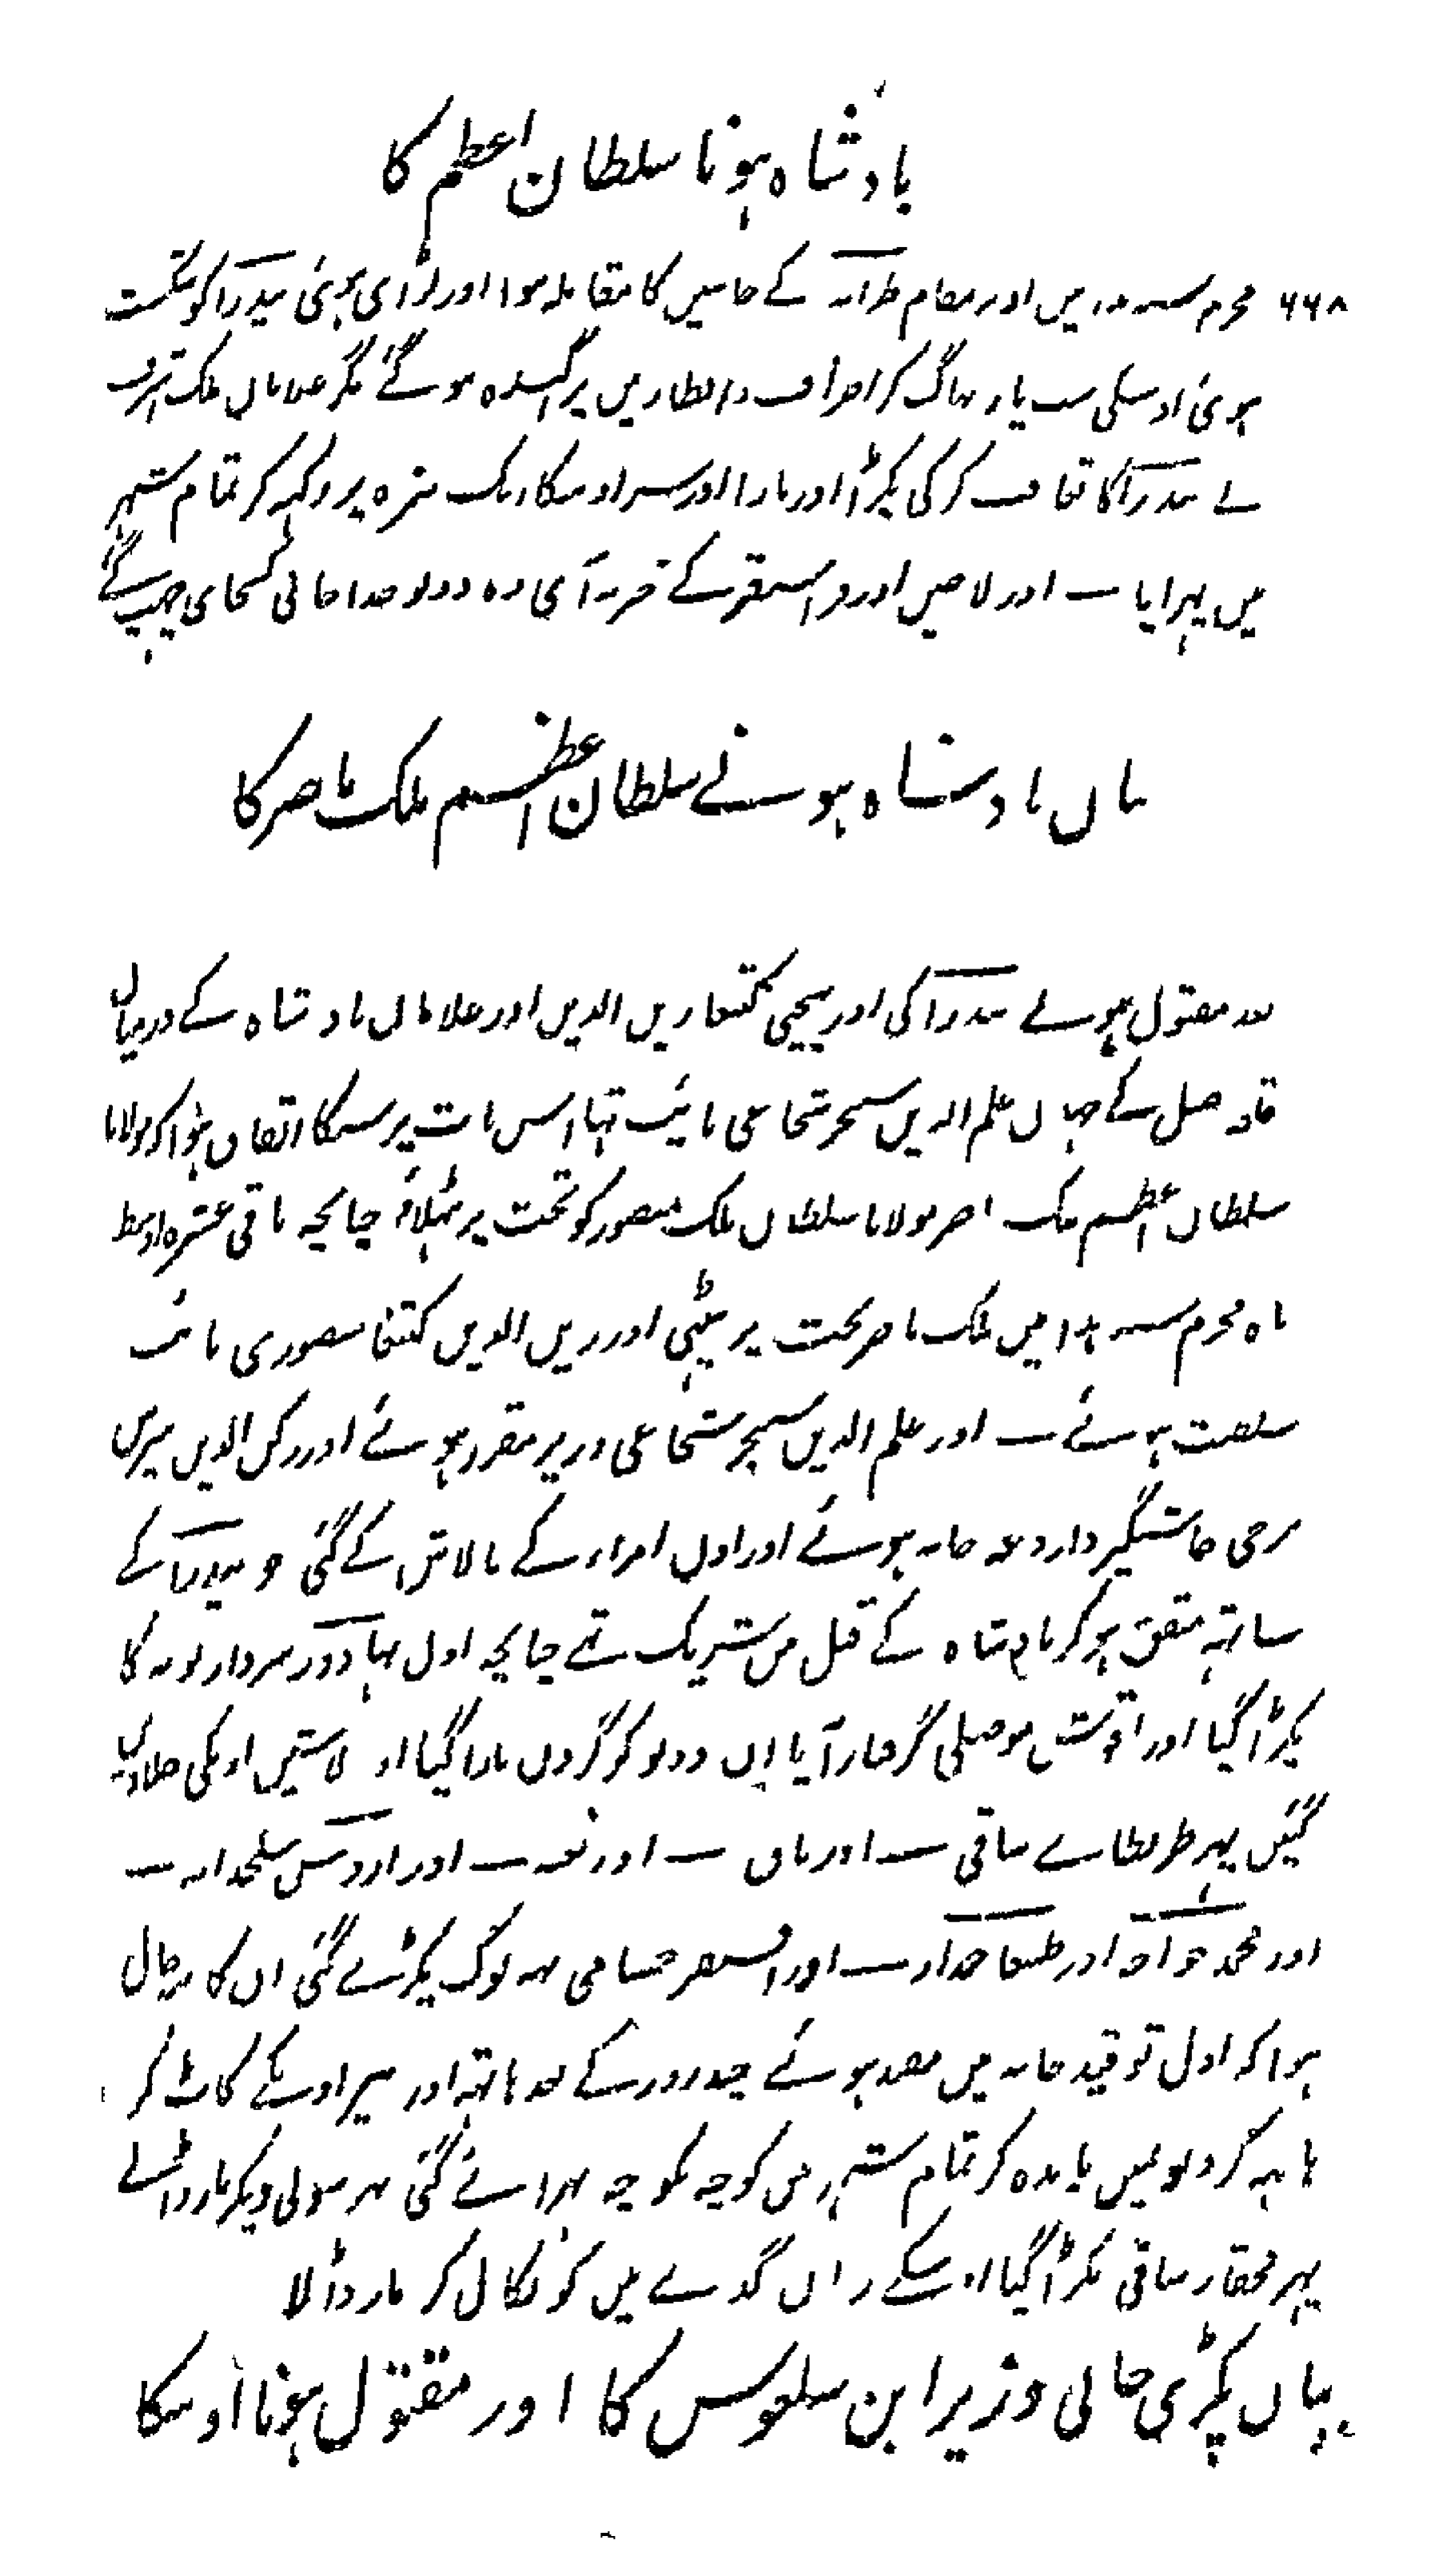 بادشاہ ہونا سلطان اعظم کا
۶۶۸ محرم سنہ میں اور مقام طرانہ کے جانبین کا مقابلہ ہوا اور لڑای ہوئی بیدرا کو شکست
ہوئی اوسکی سب یار بھاگ کر اطراف و اقطار میں پراگندہ ہو گئے مگر غلامان ملک اشرف
نے بیدرا کا تعاقب کر کی پکڑا اور مارا اور سر اوسکا ایک نیزہ پر رکہہ کر تمام شہر
میں پہرایا ۔ اور لاجین اور قراسنقر کے خبر نہ آی وہ دونو خدا جانی کسجای چھپ گے
بیان بادشاہ ہونے سلطان اعظم ملک ناصر کا
بعد مقتول ہونے بیدرا کی اور پہنچی کتبغا زین الدین اور غلامان بادشاہ کے درمیان
قلعہ جبل کے جہاں علم الدین سنجر شجاعی نایب تہا اس بات پر سبکا اتفاق ہوا کہ مولانا
سلطان اعظم ملک ناصر مولانا سلطان ملک منصور کو تخت پر بٹہلاؤ چنانچہ باقی عشرہ اوسط
ماہ محرم سنہ میں ملک ناصر تخت پر بیٹہی اور زین الدین کتبغا منصوری نائب
سلطنت ہوئے ۔ اور علم الدین سنجر شجاعی وزیر مقرر ہوئے اور رکن الدین بیبرس
برجی جاشنگیر داروغہ خانہ ہوئے اور اول امراء کے تلاش کے گئی جو بیدرا کے
ساتہہ متفق ہو کر بادشاہ کے قتل میں شریک تہے چنانچہ اول بہادر سردار نوبہ کا
پکڑا گیا اور اقوش موصلی گرفتار آیا ان دونو کو گردن مارا گیا اور لاشیں اونکی جلا دی
گئیں پہر طرنطاے ساقی ۔ اور ناق ۔ اور نغیہ ۔ اور اروس سلحدار ۔
اور محمد خواجہ اور طبغا جمدار ۔ اور اقسنقر حسامی یہہ لوگ پکڑے گئی ان کا یہ حال
ہوا کہ اول تو قید خانہ میں مقید ہوئے چند روز کے بعد ہاتہہ اور پیر اونکے کاٹ کر
ہاتہہ گردنوں میں باندہ کر تمام شہر میں کوچہ بکوچہ پہرائے گئی پہر سولی دیکر مار ڈالے
پہر قجقار ساقی پکڑا گیا اوسکے زبان گدے میں کو نکال کر مار ڈالا
بیان پکڑی جانی وزیر ابن سلعوس کا اور مقتول ہونا اوسکا